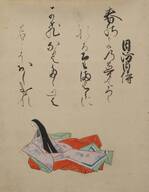 周防内侍
春の夜の夢はか
りなる手枕に
かひなくたゝむ
名こそおしけれ